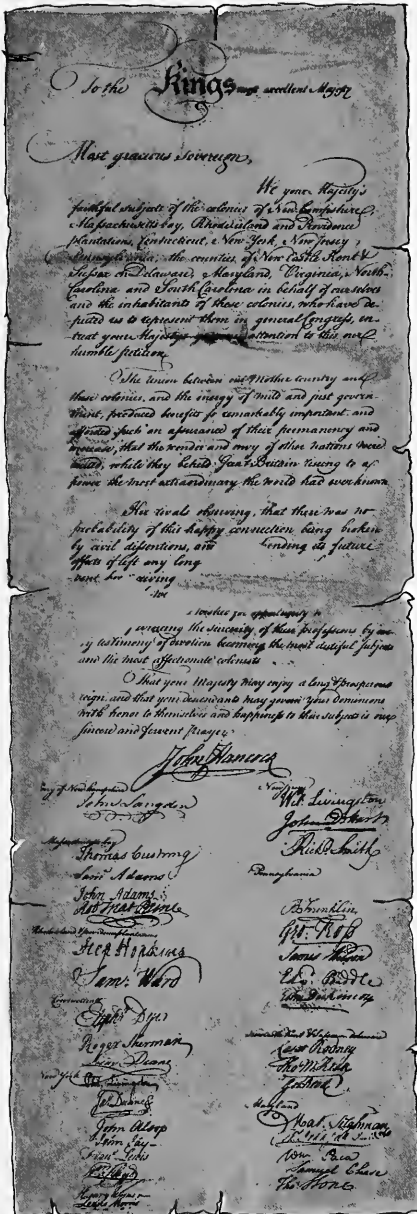 To the Kings most excellent Majesty
Most gracious sovereign,
We your Majesty's
faithful subjects of the colonies of New Hampshire,
Massachusetts bay, Rhode island and Providence
plantations, Connecticut, New York, New Jersey,
Pennsylvania, the counties of New Castle Kent &
Sussex on Delaware, Maryland, Virginia, North
Carolina and South Carolina in behalf of ourselves
and the inhabitants of these colonies, who have de-
puted us to represent them in general Congress, en-
treat your Majestys attention to this our
humble petition.
The union between our Mother Country and
these colonies, and the energy of mild and just govern-
ment, produced benefits so remarkably important and
afforded such an assurance of their permanency and
increase, that the wonder and envy of other nations were
excited, while they beheld Great Britain rising to a
power the most extraordinary the world had ever known
Her rivals observing, that there was no
probability of this happy connection being broken
by civil dissentions, and its future
effects if left any long
vent her
opportunity
the sincerity of these professions by
testimony of devotion becoming the most dutiful subjects
and the most affectionate colonists
That your Majesty may enjoy a long & prosperous
reign, and that your descendants may govern your dominions
with honor to themselves and happiness to their subjects is our
sincere and fervent prayer
John Hancock
John Langdon
Thomas Cushing
Saml Adams
John Adams
Rob Treat Paine
Step Hopkins
Sam: Ward
Elipht Dyer
Roger Sherman
Silas Deane
New York
Jas Duane
John Alsop
John Jay
Lewis Morris
Wil: Livingston
Richd Smith
Pennsylvania
B Franklin
Geo: Ross
James Wilson
Edw. Biddle
John Dickinson
Caesar Rodney
Tho M:Kean
Geo Read
Maryland
Mat. Tilghman
Wm Paca
Samuel Chase
Tho Stone